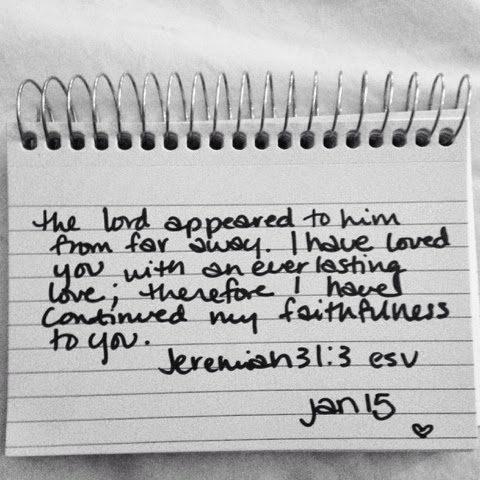 the lord appeared to him
from far away. I have loved
you with an everlasting
love; therefore I have
continued my faithfulness
to you.
Jeremiah 31:3 esv
jan 15